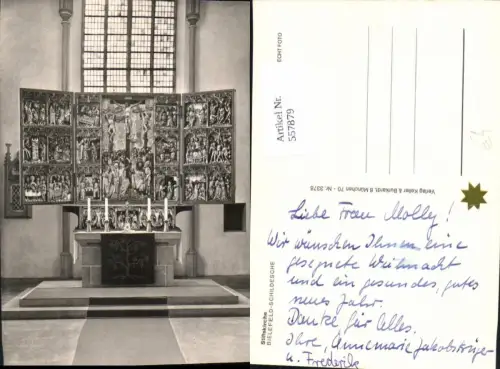 Stiftskirche
BIELEFELD-SCHILDESCHE
ECHT FOTO
Artikel Nr.
557879
Verlag Keller & Burkardt, 8 München 70 · Nr. 3378
Liebe Frau Molly!
Wir wünschen Ihnen eine
gesegnete Weihnacht
und ein gesundes, gutes
neues Jahr.
Danke für Alles.
Ihre, Annemarie Jakobskrüger
u. Frederik